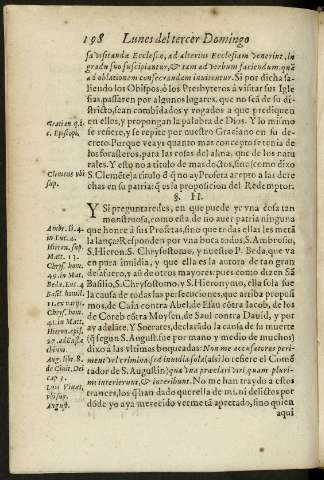 198 Lunes del tercer Domingo
sa visitandæ Ecclesiæ, ad alterius Ecclesiam venerint, in
gradu suo suscipiantur, & tam ad verbum faciendum, quã
ad oblationem consecrandam invitentur. Si por dicha sa-
liendo los Obispos, ò los Presbyteros à visitar sus Igle
sias, passaren por algunos lugares, que no seã de su di-
stricto, sean combidados y rogados a que prediquen
en ellos, y propongan la palabra de Dios. Y lo mismo
se refiere, y se repite por nuestro Graciano en su de-
creto. Porque veays quanto mas concepto se tenia de
los forasteros, para las cosas del alma, que de los natu
rales. Y esto no a titulo de mas doctos, sino (como dixo
S. Clemẽte) a titulo d̃ q̃ no ay Profeta acepto a las dere
chas en su patria: q̃ es la proposicion del Redemptor.
§. II.
Y Si preguntaredes, en que puede yr vna cosa tan
monstruosa, como esta, de no auer patria ninguna
que honre à sus Profetas, sino que todas ellas les metã
la lança? Responden por vna boca todos, S. Ambrosio,
S. Hieron. S. Chrysostomo, y nuestro P. Beda, que va
en pura inuidia, y que ella es la autora de tan gran
desafuero, y aũ de otros mayores: pues como dizen Sã
Basilio, S. Chrysostomo, y S. Hieronymo, ella sola fue
la causa de todas las persecuciones, que arriba propusi
mos, de Cain contra Abel, de Esau cõtra Iacob, de los
de Coreb cõtra Moysen, de Saul contra Dauid, y por
ay adelãte. Y Socrates, declarãdo la causa de su muerte
(q̃ segun S. Augustin, fue por mano y medio de muchos)
dixo à las vltimas boqueadas: Non me accusatores peri-
ment, vel crimina, sed inuidia sola (assi lo refiere el Comẽ
tador de S. Augustin) quæ viri præclari viri, quam pluri-
mi interierunt, & interibunt. No me han traydo a estos
trances, los q̃ han dado querella de mi, ni delictos por
dõde yo aya merecido verme tã apretado, sino quien
aqui
Gratian. q. 1.
c. Episcopi.
Clemens vbi
sup.
Ambr. li. 4.
in Luc. 4.
Hieron. sup.
Matt. 13.
Chrys. hom.
49. in Mat.
Beda. Luc. 4
Basil. homil.
11. ex varijs.
Chrys. hom.
41. in Matt.
Hieron. epis.
Aug. libr. 8.
de Ciuit. Dei
cap. 3.
Lud. Viues,
vbi sup.
August.